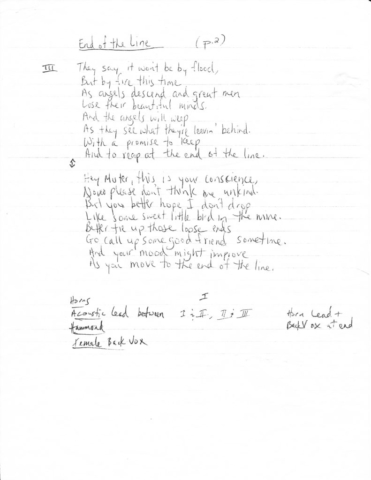 End of the Line (p.2)
III They say it won't be by flood,
But by fire this time
As angels descend and great men
Lose their beautiful minds.
And the angels will weep
As they see what they're leavin' behind.
With a promise to keep
And to reap at the end of the line.
Hey Mister, this is your conscience,
Now please don't think me unkind
But you better hope I don't drop
Like some sweet little bird in the mine.
Better tie up those loose ends
Go call up some good friend sometime.
And your mood might improve
As you move to the end of the line.
Horns I
Acoustic Lead between I & II, II & III Horn Lead +
Hammond Back Vox at end
Female Back Vox